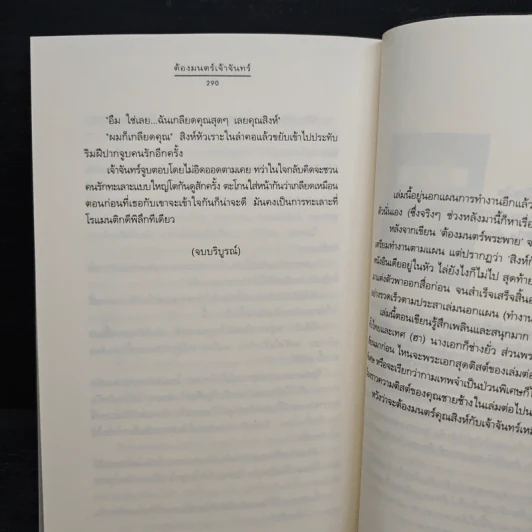 ต้องมนตร์เจ้าจันทร์
290
"อืม ใช่เลย...ฉันเกลียดคุณสุดๆ เลยคุณสิงห์"
"ผมก็เกลียดคุณ" สิงห์หัวเราะในลำคอแล้วขยับเข้าไปประทับ
ริมฝีปากจูบคนรักอีกครั้ง
เจ้าจันทร์จูบตอบโดยไม่อิดออดตามเคย ทว่าในใจกลับคิดจะชวน
คนรักทะเลาะแบบใหญ่โตกันดูสักครั้ง ตะโกนใส่หน้ากันว่าเกลียดเหมือน
ตอนก่อนที่เธอกับเขาจะเข้าใจกันก็น่าจะดี มันคงเป็นการทะเลาะที่
โรแมนติกดีพิลึกทีเดียว
(จบบริบูรณ์)
เล่มนี้อยู่นอกแผนการทำงานอีกแล้ว
ตัวนั่นเอง (ซึ่งจริงๆ ช่วงหลังมานี้ก็หาเรื่อง
หลังจากเขียน 'ต้องมนตร์พระพาย' จ
เตรียมทำงานตามแผน แต่ปรากฏว่า 'สิงห์ก
หนังอินเดียอยู่ในหัว ไล่ยังไงก็ไม่ไป สุดท้าย
มาแต่งตัวพาออกสื่อก่อน จนสำเร็จเสร็จสิ้น
อย่างรวดเร็วตามประสาเล่มนอกแผน (ทำงาน
เล่มนี้ตอนเขียนรู้สึกเพลินและสนุกมาก
ทั้งไทยและเทศ (ฮา) นางเอกก็ช่างยั่ว ส่วนพร
ก่อน ไหนจะพระเอกสุดติสต์ของเล่มต่อ
หรือจะเรียกว่ากามเทพจำเป็นป่วนพิเศษก็ไ
ความติสต์ของคุณชายช้างในเล่มต่อไปน
หวังว่าจะต้องมนตร์คุณสิงห์กับเจ้าจันทร์เหมื